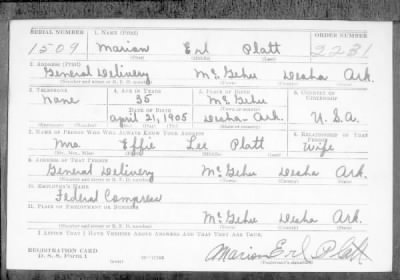 SERIAL NUMBER 1. NAME (Print) ORDER NUMBER
1509 Marion Erl Platt 2231
(First) (Middle) (Last)
2. ADDRESS (Print)
General Delivery McGehee Desha Ark.
(Number and street or R. F. D. number) (Town) (County) (State)
3. TELEPHONE 4. AGE IN YEARS 5. PLACE OF BIRTH 6. COUNTRY OF CITIZENSHIP
None 35 McGehee
DATE OF BIRTH (Town or county)
April 21, 1905 Desha - Ark. U.S.A.
(Exchange) (Number) (Mo.) (Day) (Yr.) (State or country)
7. NAME OF PERSON WHO WILL ALWAYS KNOW YOUR ADDRESS 8. RELATIONSHIP OF THAT PERSON
Mrs. Effie Lee Platt Wife
(Mr., Mrs., Miss) (First) (Middle) (Last)
9. ADDRESS OF THAT PERSON
General Delivery McGehee Desha Ark.
(Number and street or R. F. D. number) (Town) (County) (State)
10. EMPLOYER'S NAME
Federal Compress
11. PLACE OF EMPLOYMENT OR BUSINESS
McGehee Desha Ark.
(Number and street or R. F. D. number) (Town) (County) (State)
I AFFIRM THAT I HAVE VERIFIED ABOVE ANSWERS AND THAT THEY ARE TRUE.
REGISTRATION CARD
D. S. S. FORM 1 Marion Erl Platt
(over) (Registrant's signature)